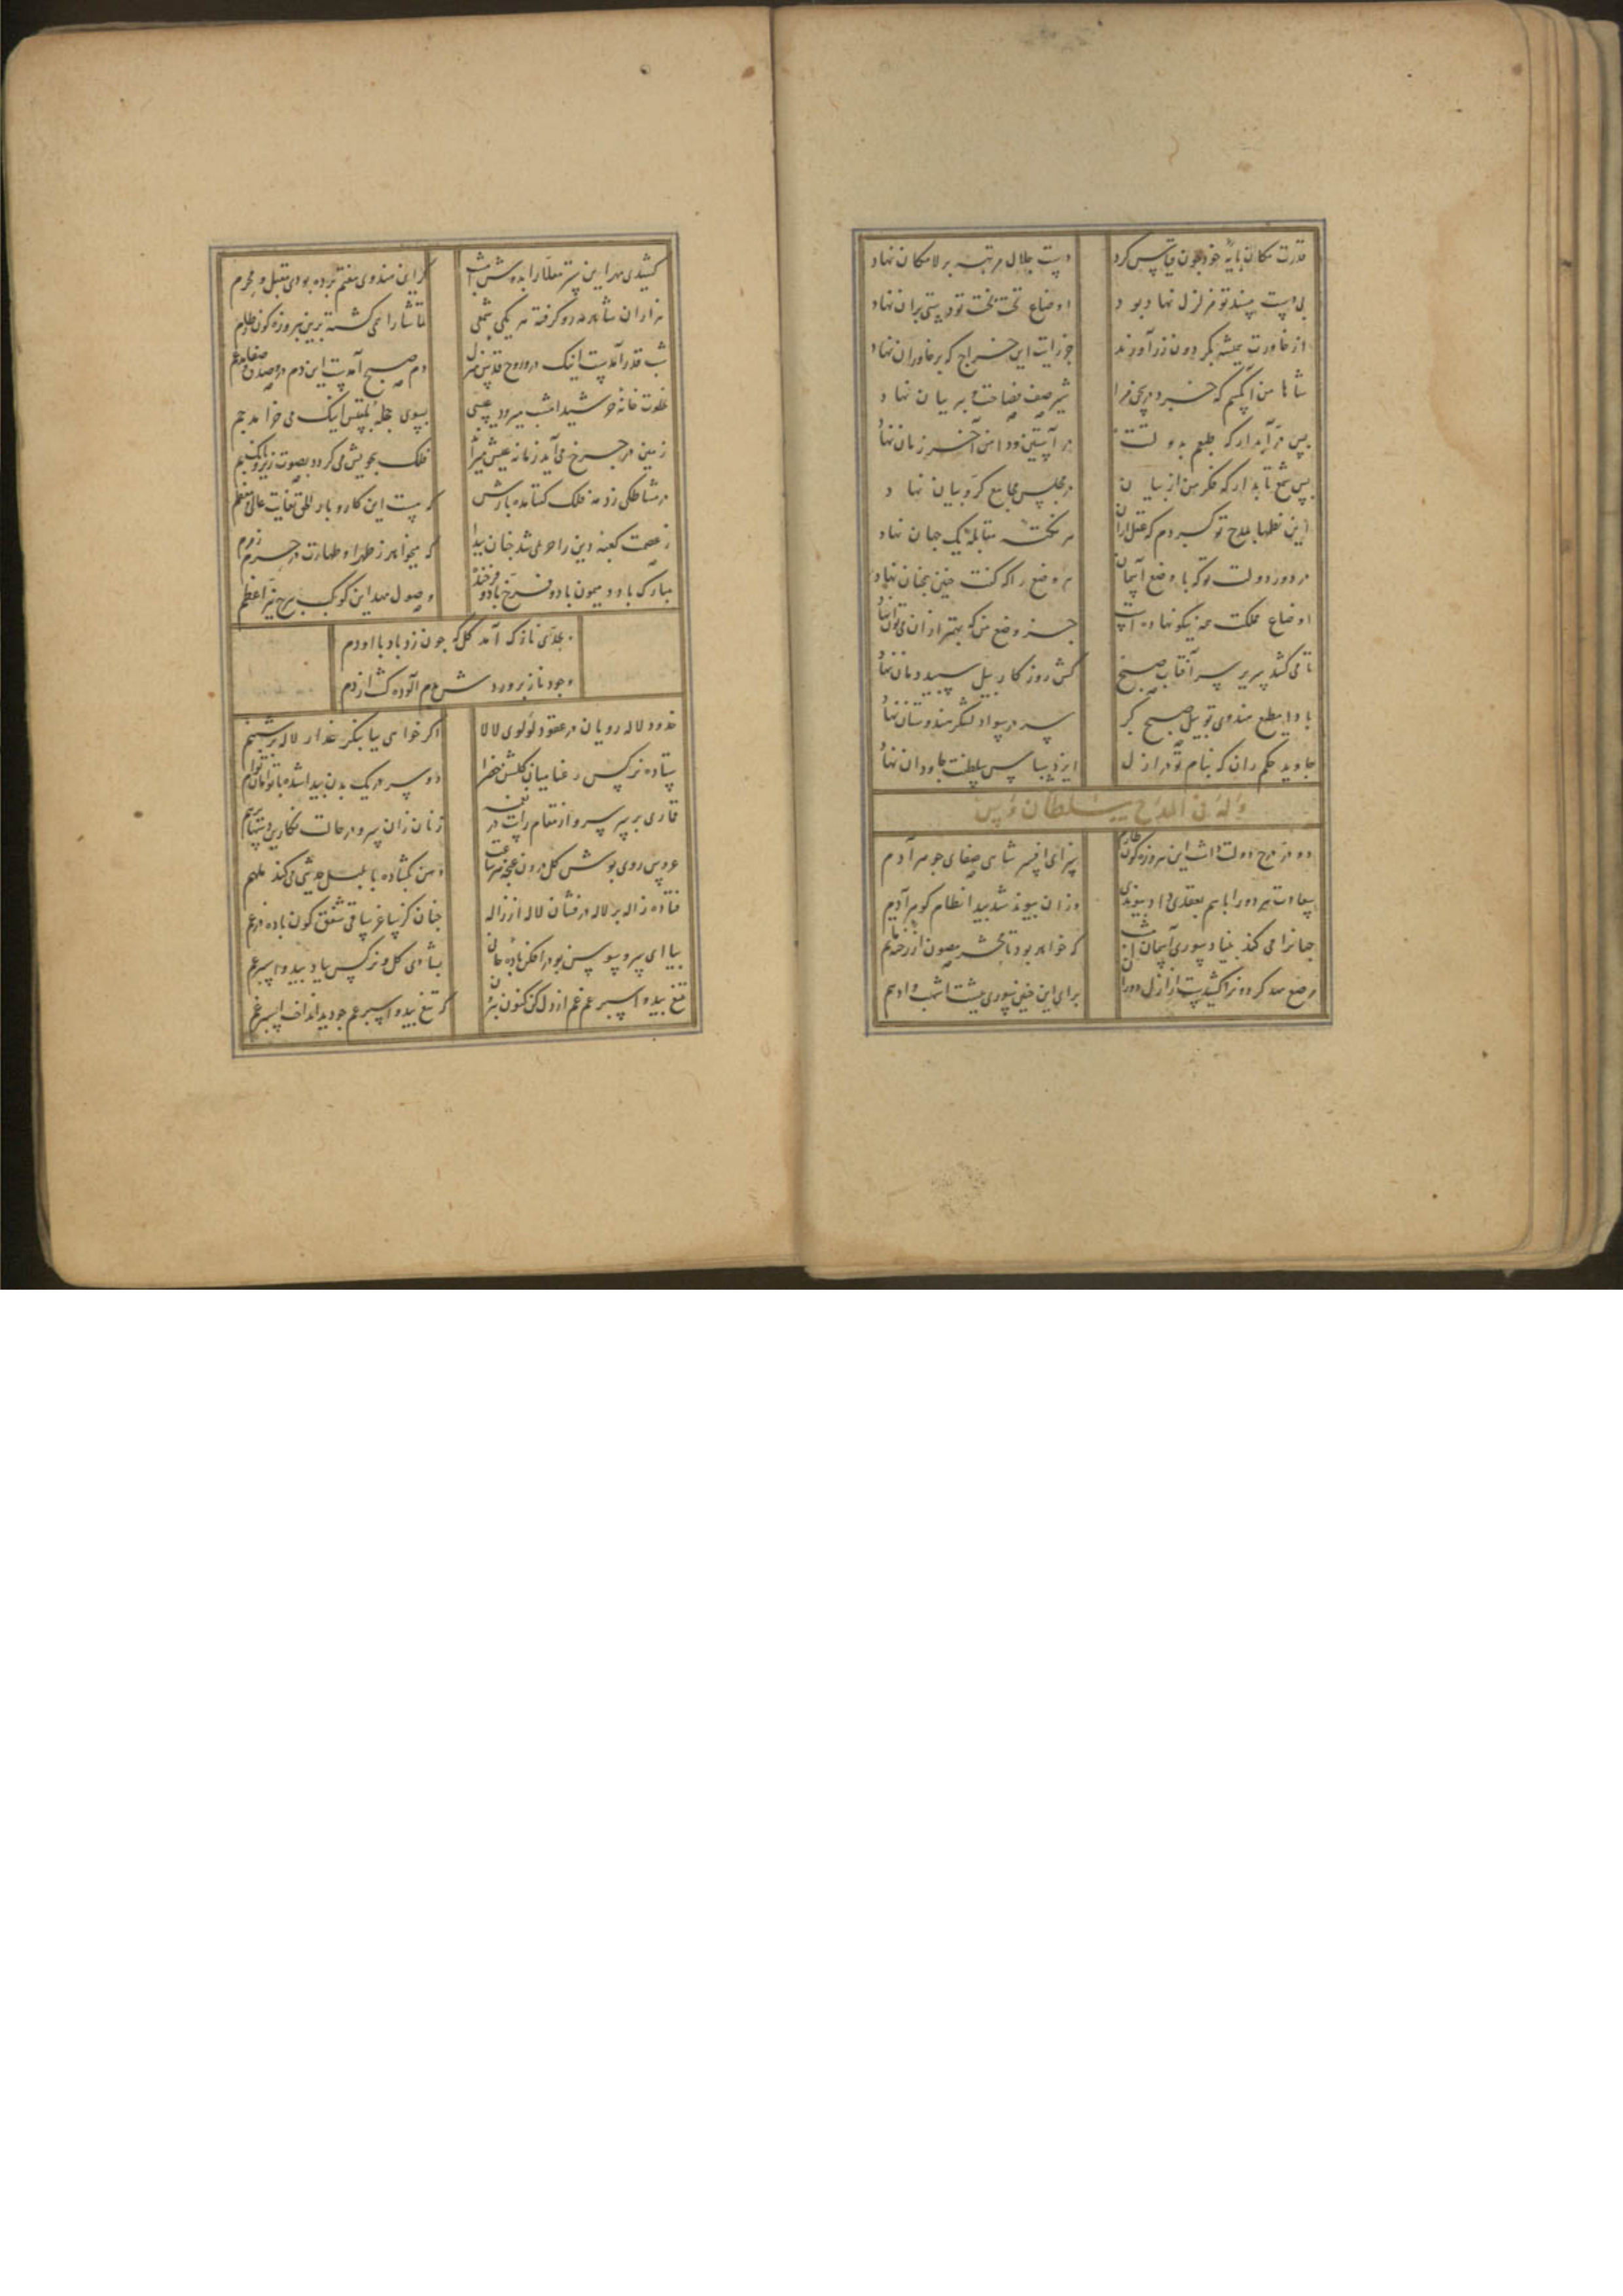 قدرت مکان پایه خود چون قیاس کرد دست جلال مرتبه بر لامکان نهاد
بی دست مسند تو مزلزل نهاد بود اوضاع تخت بخت تو دستی بران نهاد
از خاورت همیشه بگردون زر آورند جوزات این خراج که بر خاوران نهاد
شاها من آنکسم که خسرو در سخن مرا شیر صف فصاحت بیان نهاد
بس در آبدار که طبعم بدولتت در آستین و دامن آخر زمان نهاد
بس شمع تابدار که فکر من از بیان در مجلس مجامع کروبیان نهاد
این نظمها بمدح تو کردم که عقل ازان هر نکته مقابله یک جهان نهاد
در دور دولت تو که با وضع آسمان هر وضع را که گفت چنین نه چنان نهاد
اوضاع مملکت همه نیکو نهاده است جز وضع من که بهتر ازان می توان نهاد
تا می کشد بر سر آفتاب صبح کش روزگار بیل سپید دمان نهاد
بادا مطیع هندوی تو بیل صبح کز سر در سواد لشکر هندوستان نهاد
جاوید حکم ران که بنام تو در ازل ایزد سپاس سلطنت جاودان نهاد
وله فی المدح سلطان اویس
دو در درج دولت داشت این فیروزه گون طارم سزای افسر شاهی صفای جوهر آدم
سعادت هر دو را باهم بعقدی داد پیوندی وزان پیوند شد پیدا نظام گوهر آدم
جهانرا می کند بنیاد سوری آسمان که خواهد بود تا محشر مصون از زحمت ماتم
مرصع مهد کردون را کشیدست از ازل دوران برای این چنین سوری بپشت اشهب و ادهم
کشیدی مهد این ستر معلا را بدوش امشب گر این هندوی هفتم برده بودی مقبل و محرم
هزاران شاهد مه رو گرفته هر یکی شمعی تماشا را همی گشته برین فیروزه گون طارم
شب قدر آمدست اینک درو روح قدس منزل دم صبح آمدست این دم درو صدق و صفا مدغم
بخلوت خانه خورشید امشب میرود عیسی بسوی حجله بلقیس اینک می خرامد جم
زمین در چرخ می آید زمانه عیش میراند فلک بخویش می گردد بصوت زیر و بانگ بم
در مشاطگی زد مه فلک نگشاد بارش که هست این کار و بار الحق بغایت عالی و معظم
ز عصمت کعبه دین را حریمی شد چنان پیدا که میخواهد ز طهر او طهارت در حرم زمزم
مبارک باد و میمون باد و فرخ باد و فرخنده وصول مهد این کوکب ببرج نیر اعظم
بجلای نازک آمد گل که چون زد باد با او دم
وجود نازپرورد شدم آلوده گشت از دم
خدود لاله رویان در عقود لولوی لالا اگر خواهی بیا بنگر عذار لاله بر شبنم
ستاده نرگس رعنا میان گلشن خضرا دو سر در یک بدن پیدا شده با توامان توام
قماری بر سر سرو از مقام راست در نغمه زنان زان سرو در حالت نگارین دستها بر هم
عروس روی پوش گل درون غنچه هر ساعت دهن بگشاده با بلبل حدیثی می کند مبهم
فتاده ژاله بر لاله درفشان لاله از ژاله چنان کز ساغر ساقی شفق گون باده در غم
بیا ای سرو سوسن بو در افکن باده گلگون بشادی گل و نرگس بیاد بید و اسپرغم
بتیغ بید و اسپرغم غم از دل کن کنون بیرون که تیغ بید و اسپرغم چو دید انداخت اسپر غم